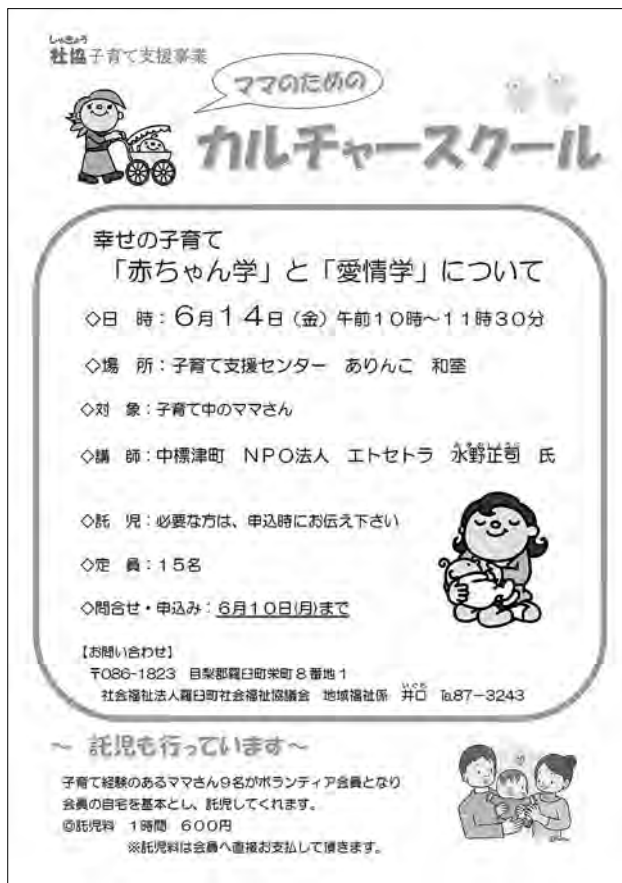 しゃきょう
社協子育て支援事業
ママのための
カルチャースクール
幸せの子育て
「赤ちゃん学」と「愛情学」について
◇日　時：６月１４日（金）午前１０時～１１時３０分
◇場　所：子育て支援センター　ありんこ　和室
◇対　象：子育て中のママさん
◇講　師：中標津町　ＮＰＯ法人　エトセトラ　水野正司　氏
◇託　児：必要な方は、申込時にお伝え下さい
◇定　員：１５名
◇問合せ・申込み：６月１０日(月)まで
【お問い合わせ】
〒086-1823　目梨郡羅臼町栄町８番地１
いぐち
社会福祉法人羅臼町社会福祉協議会　地域福祉係　井口　℡87－3243
～　託児も行っています～
子育て経験のあるママさん９名がボランティア会員となり
会員の自宅を基本とし、託児してくれます。
◎託児料　１時間　６００円
※託児料は会員へ直接お支払して頂きます。